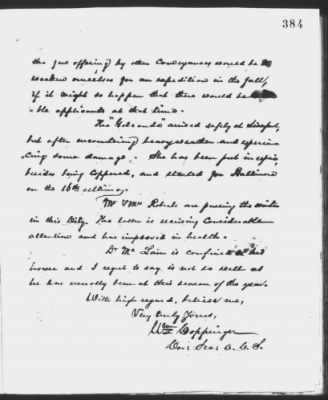 384
the few offering by other conveyances would be to
weaken ourselves for an expedition in the fall,
if it might so happen that there would be
ble applicants at that time.
The "Golconda" arrived safely at Liverpool,
but after encountering heavy weather and experien
cing some damage. She has been put in repair,
besides being coppered, and started for Baltimore
on the 16th ultimo.
Mr & Mrs Roberts are passing the winter
in this City. The latter is receiving considerable
attention and has improved in health.
Dr Mc Lain is confined to his
house and I regret to say, is not as well as
he has usually been at this season of the year.
With high regard, believe me,
Very truly Yours,
Wm Coppinger
Cor: Sec: A. C. S.